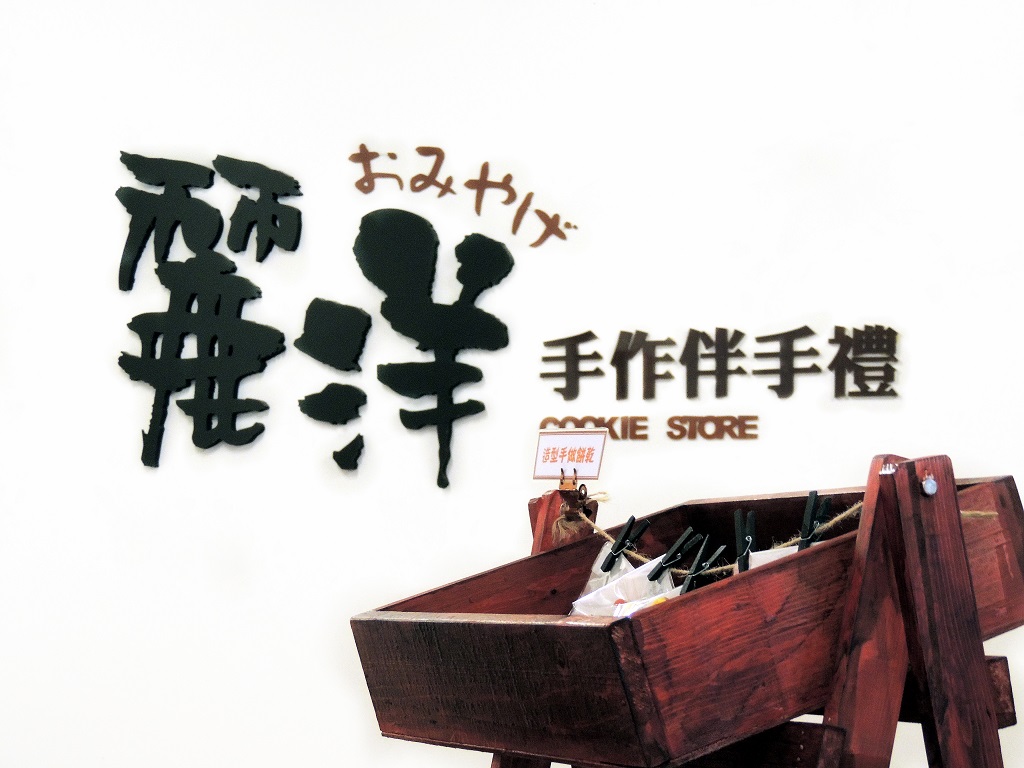 おみやげ
麗洋
手作伴手禮
COOKIE STORE
造型手做餅乾